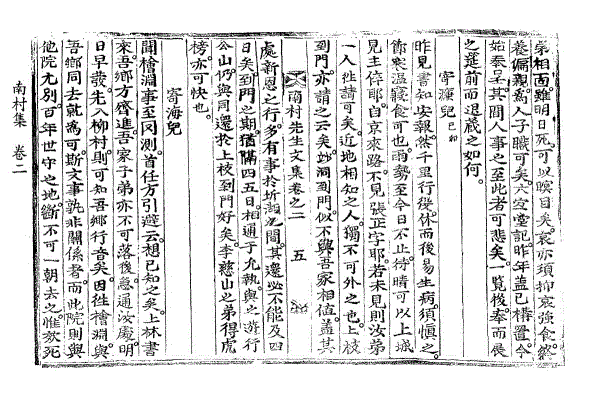 弟相面雖明日死可以瞑目矣哀亦須抑哀強食終
養偏親爲人子職可矣六安堂記昨年蓋已構置今
始泰呈其間人事之至此者可悲矣一覧後奉而展
之筵前而退藏之如何
寄淵兒 己卯
昨見書知安報然千里行役休而後易生病須慎之
節宣温 食可也雨勢至今日不止待晴可以上城
見主倅耶自京來路不見張正字耶若未見則汝弟
一人往請可矣近地相知之人獨不可外之也上枝
到門亦請之云矣 洞到門似不與吾家相値蓋其
南村先生文集卷之二 五
處新恩之行多有事於 間其還必不能及四
日矣到門之期猶隔四五日相通于允執與之遊行
公山仍與同還於上枝到門好矣李慈山之弟得虎
榜亦可快也
寄海兒
聞檜淵事至罔測首任方引避云想已知之矣上林書
來吾鄉方齊進吾家子弟亦不可落後急通汝慶明
日早發先入柳村則可知吾鄉行音矣因往檜淵與
吾鄉同去就爲可斯文事孰非關係者而此院則與
他院尤別百年世守之地斷不可一朝去之惟放死
南村集 卷二